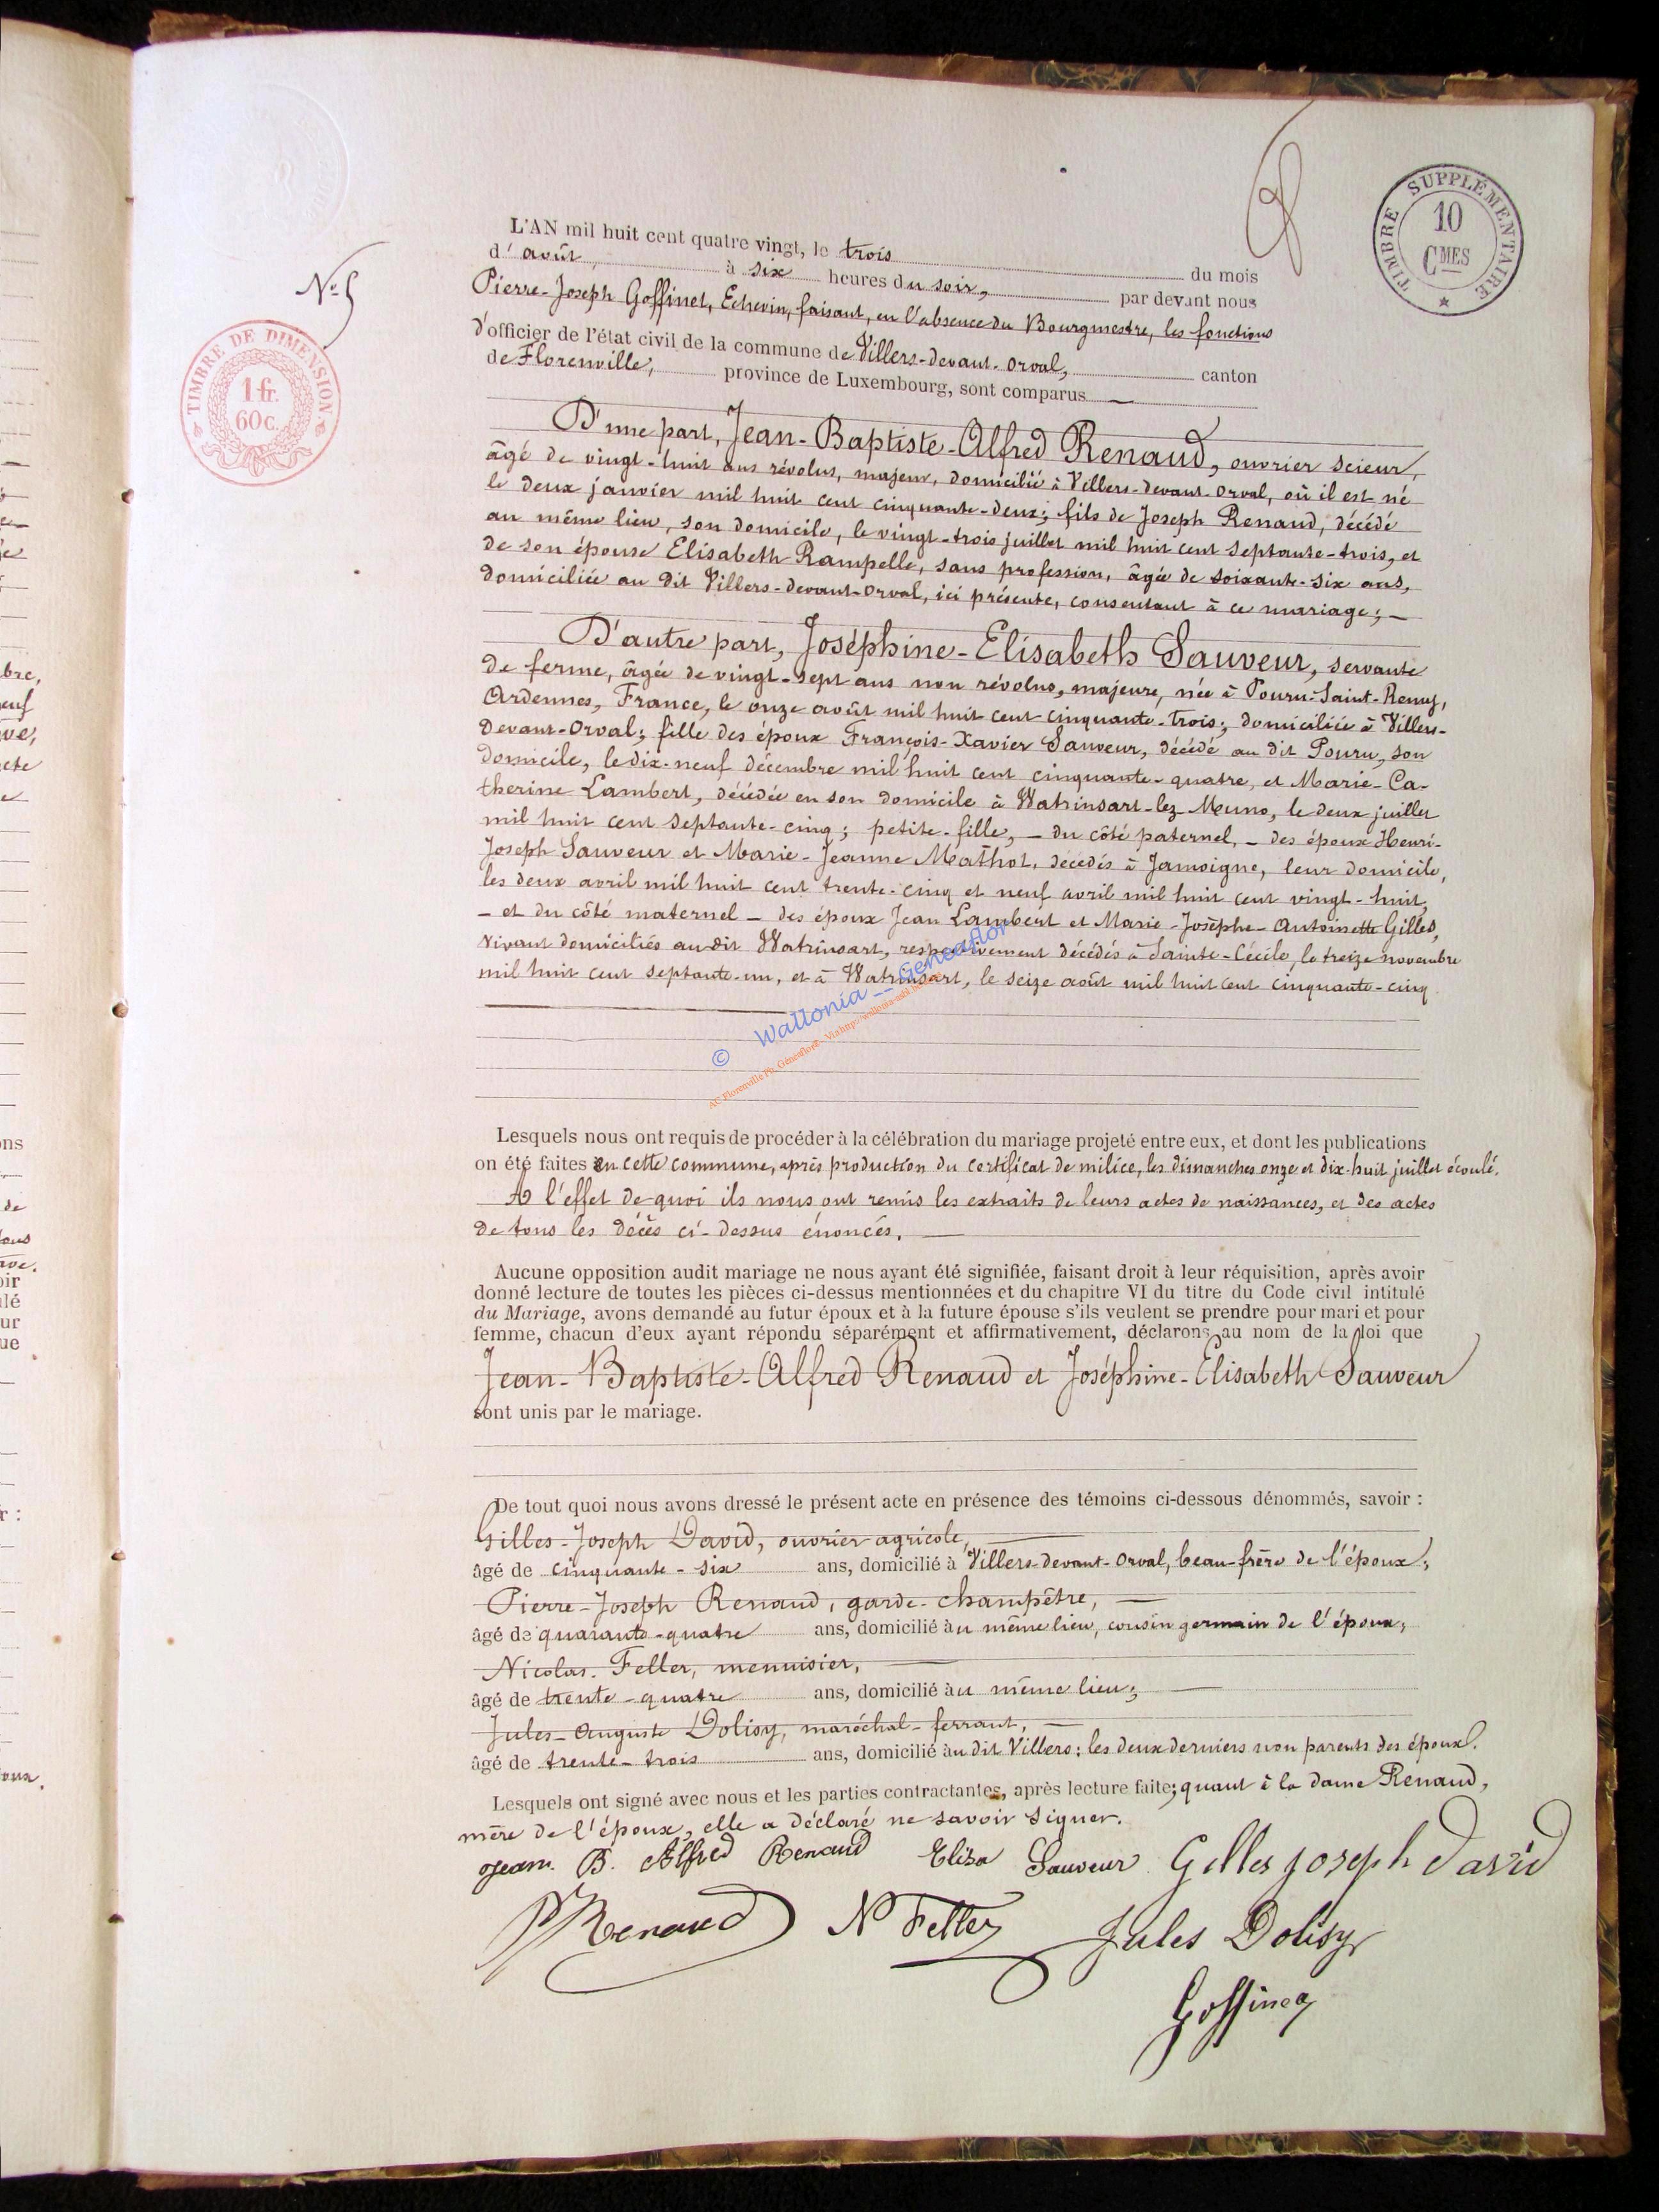 TIMBRE SUPPLÉMENTAIRE
10
CMES
N° 5
TIMBRE DE DIMENSION
1 fr.
60 c.
L'AN mil huit cent quatre vingt, le trois du mois
d'août, à six heures du soir, par devant nous
Pierre-Joseph Goffinet, Echevin, faisant, en l'absence du Bourgmestre, les fonctions
d'officier de l'état civil de la commune de Villers-devant-Orval, canton
de Florenville, province de Luxembourg, sont comparus —
D'une part, Jean-Baptiste-Alfred Renaud, ouvrier scieur,
âgé de vingt-huit ans révolus, majeur, domicilié à Villers-devant-Orval, où il est né
le deux janvier mil huit cent cinquante-deux; fils de Joseph Renaud, décédé
au même lieu, son domicile, le vingt-trois juillet mil huit cent septante-trois, et
de son épouse Elisabeth Rampelle, sans profession, âgée de soixante-six ans,
domiciliée au dit Villers-devant-Orval, ici présente, consentant à ce mariage; —
D'autre part, Joséphine-Elisabeth Sauveur, servante
de ferme, âgée de vingt-sept ans non révolus, majeure, née à Pouru-Saint-Remy,
Ardennes, France, le onze août mil huit cent cinquante-trois; domiciliée à Villers-
devant-Orval; fille des époux François-Xavier Sauveur, décédé au dit Pouru, son
domicile, le dix-neuf décembre mil huit cent cinquante-quatre, et Marie-Ca-
therine Lambert, décédée en son domicile à Watrinsart-lez-Muno, le deux juillet
mil huit cent septante-cinq; petite-fille, — du côté paternel, — des époux Henri-
Joseph Sauveur et Marie-Jeanne Mathot, décédés à Jamoigne, leur domicile,
les deux avril mil huit cent trente-cinq et neuf avril mil huit cent vingt-huit,
— et du côté maternel — des époux Jean Lambert et Marie-Josèphe-Antoinette Gilles,
vivant domiciliés audit Watrinsart, respectivement décédés à Sainte-Cécile, le treize novembre
mil huit cent septante-un, et à Watrinsart, le seize août mil huit cent cinquante-cinq
© Wallonia -- Geneaflor
Lesquels nous ont requis de procéder à la célébration du mariage projeté entre eux, et dont les publications
on été faites en cette commune, après production du certificat de milice, les dimanches onze et dix-huit juillet écoulé.
A l'effet de quoi ils nous ont remis les extraits de leurs actes de naissances, et des actes
de tous les décès ci-dessus énoncés. —
Aucune opposition audit mariage ne nous ayant été signifiée, faisant droit à leur réquisition, après avoir
donné lecture de toutes les pièces ci-dessus mentionnées et du chapitre VI du titre du Code civil intitulé
du Mariage, avons demandé au futur époux et à la future épouse s'ils veulent se prendre pour mari et pour
femme, chacun d'eux ayant répondu séparément et affirmativement, déclarons au nom de la loi que
Jean-Baptiste-Alfred Renaud et Joséphine-Elisabeth Sauveur
sont unis par le mariage.
De tout quoi nous avons dressé le présent acte en présence des témoins ci-dessous dénommés, savoir :
Gilles-Joseph David, ouvrier agricole,
âgé de cinquante-six ans, domicilié à Villers-devant-Orval, beau-frère de l'époux;
Pierre-Joseph Renaud, garde-champêtre, —
âgé de quarante-quatre ans, domicilié au même lieu, cousin germain de l'époux;
Nicolas Feller, menuisier, —
âgé de trente-quatre ans, domicilié au même lieu; —
Jules-Auguste Dolisy, maréchal-ferrant, —
âgé de trente-trois ans, domicilié au dit Villers; les deux derniers non parents des époux.
Lesquels ont signé avec nous et les parties contractantes, après lecture faite; quant à la dame Renaud,
mère de l'époux, elle a déclaré ne savoir signer.
Jean. B. Alfred Renaud Elisa Sauveur Gilles joseph david
P Renaud N Feller Jules Dolisy
Goffinet